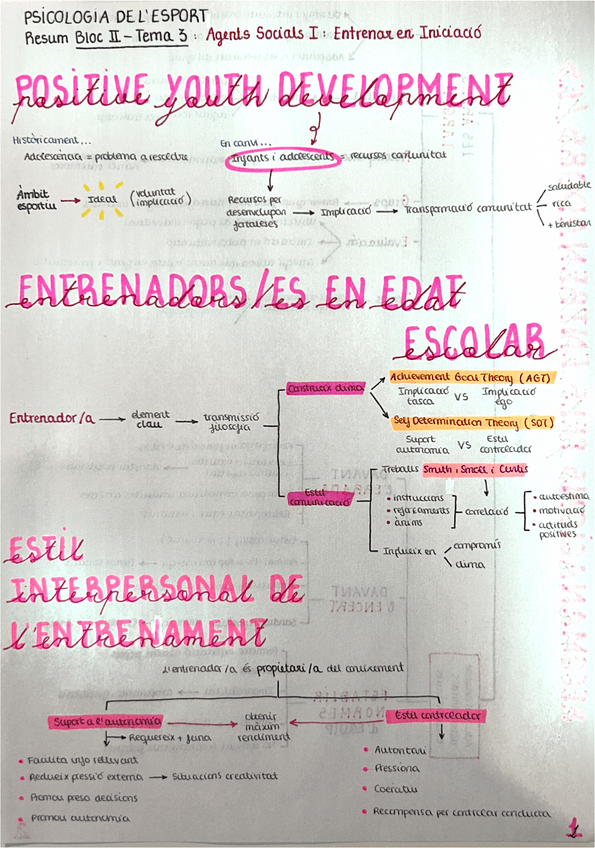 PSICOLOGIA DE L'ESPORT
Resum Bloc II - Tema 3 : Agents Socials I : Entrenar en Iniciació
POSITIVE YOUTH DEVELOPMENT
positive youth development
Històricament...
En canvi...
Adolescència = problema a resoldre
Infants i adolescents = recursos comunitat
Àmbit esportiu → Ideal (voluntat implicació)
Recursos per desenvolupar fortaleses → Implicació → Transformació comunitat
saludable
rica
+ benestar
ENTRENADORS/ES EN EDAT
entrenadors/es en edat
ESCOLAR
escolar
Entrenador/a → element clau → transmissió filosofia
Construeix clima
Achievement Goal Theory (AGT)
Implicació tasca VS Implicació ego
Self Determination Theory (SDT)
Suport autonomia VS Estil controlador
Estil comunicació
Treballs Smith, Smoll i Curtis
• instruccions
• reforçaments
• ànims
correlació
• autoestima
• motivació
• actituds positives
Influeix en
compromís
clima
ESTIL
estil
INTERPERSONAL DE
interpersonal de
L'ENTRENAMENT
l'entrenament
L'entrenador/a és propietari/a del coneixement
Suport a l'autonomia → obtenir màxim rendiment ← Estil controlador
→ Requereix + feina
• Facilita info rellevant
• Redueix pressió externa → Situacions creativitat
• Promou presa decisions
• Promou autonomia
• Autoritari
• Pressiona
• Coercitiu
• Recompensa per controlar conducta
1